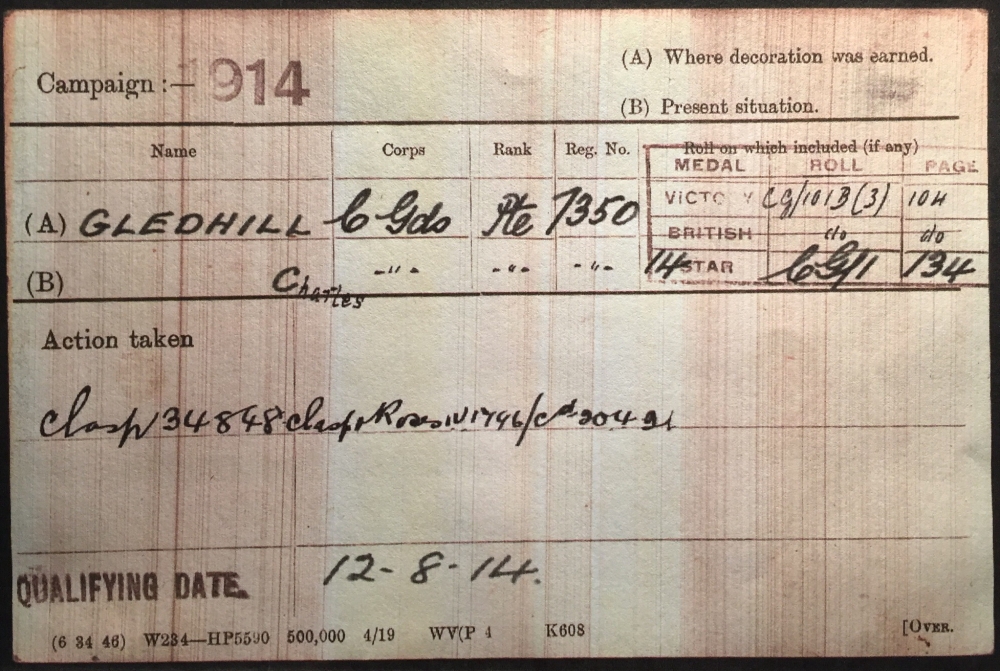 Campaign :— 1914
(A) Where decoration was earned.
(B) Present situation.
Name Corps Rank Reg. No. Roll on which included (if any)
MEDAL ROLL PAGE
(A) GLEDHILL C Gds Pte 7350 VICTO Y CG/101B(3) 104
BRITISH do do
(B) Charles -"- -"- -"- 14 STAR CG/1 134
Action taken
Clasp 34848 Clasp Roses IV 1796/
QUALIFYING DATE. 12-8-14.
(6 34 46) W234—HP5590 500,000 4/19 WV(P 4 K608 [OVER.